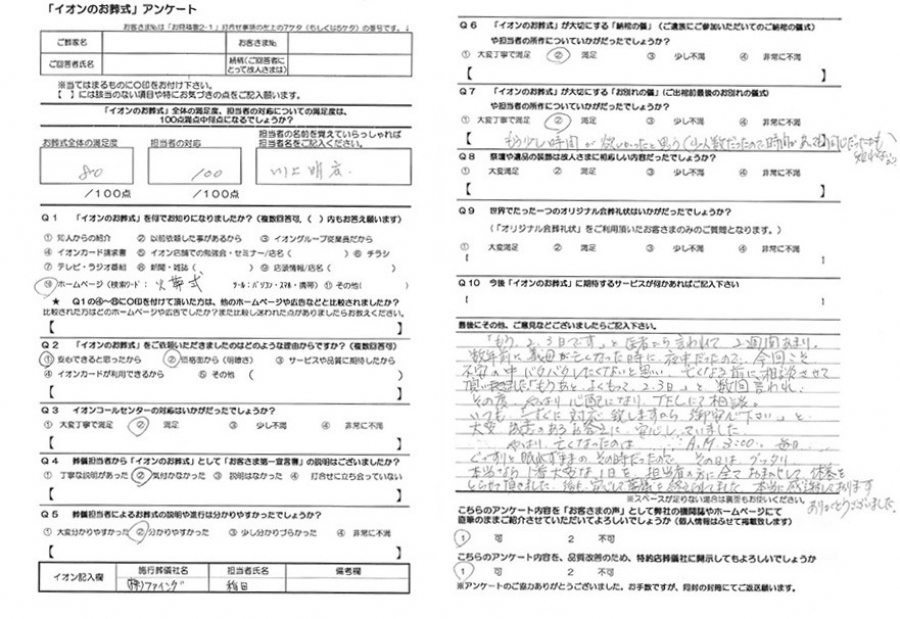 「イオンのお葬式」アンケート
お客さま№は「お見積書2-1」打合せ事項の左上の7ケタ（もしくは5ケタ）の番号です。↓
ご葬家名 お客さま№
ご回答者氏名 続柄(ご回答者にとって故人さまは)
※当てはまるものに〇印をお付けて下さい。
【　】には該当のない項目や特にお気づきの点をご記入願います。
「イオンのお葬式」全体の満足度、担当者の対応についての満足度は、
100点満点中何点になるでしょうか？
担当者の名前を覚えていらっしゃれば
お葬式全体の満足度 担当者の対応 担当者名をご記入ください。
80 100 川上明広
/100点 /100点
Q1 「イオンのお葬式」を何でお知りになりましたか？（複数回答可、（　）内もお答え願います）
① 知人からの紹介 ② 以前依頼した事があるから ③ イオングループ従業員だから
④ イオンカード請求書 ⑤ イオン店舗での勉強会・セミナー/店名（　） ⑥ チラシ
⑦ テレビ・ラジオ番組 ⑧ 新聞・雑誌（　） ⑨ 店頭情報/店名（　）
⑩ ホームページ（検索ワード： 火葬式 ツール：パソコン・スマホ・携帯） ⑪ その他（　）
★ Q1の④～⑩に〇印を付けて頂いた方は、他のホームページや広告などと比較されましたか？
比較された方はどのホームページや広告でしたか？また比較し迷われた点がありましたらお教えください。
【　】
Q2 「イオンのお葬式」をご依頼いただきましたのはどのような理由からですか？（複数回答可）
① 安心できると思ったから ② 価格面から（明瞭さ） ③ サービスや品質に期待したから
④ イオンカードが利用できるから ⑤ その他（　）
Q3 イオンコールセンターの対応はいかがだったでしょうか？
① 大変丁寧で満足 ② 満足 ③ 少し不満 ④ 非常に不満
【　】
Q4 葬儀担当者から「イオンのお葬式」として「お客さま第一宣言書」の説明はございましたか？
① 丁寧な説明があった ② 気付かなかった ③ 説明はなかった ④ 打合せに立ち会っていない
【　】
Q5 葬儀担当者によるお葬式の説明や進行は分かりやすかったでしょうか？
① 大変分かりやすかった ② 分かりやすかった ③ 少し分かりづらかった ④ 非常に不満
【　】
イオン記入欄 施行葬儀社名 担当者氏名 備考欄
(株)ファイング 稲田
Q6 「イオンのお葬式」が大切にする「納棺の儀」（ご遺族にご参加いただいてのご納棺の儀式）
や担当者の所作についていかがだったでしょうか？
① 大変丁寧で満足 ② 満足 ③ 少し不満 ④ 非常に不満
【　】
Q7 「イオンのお葬式」が大切にする「お別れの儀」（ご出棺前最後のお別れの儀式）
や担当者の所作についていかがだったでしょうか？
① 大変丁寧で満足 ② 満足 ③ 少し不満 ④ 非常に不満
もう少し時間が欲しかったと思う（少人数だったので時間が
Q8 祭壇や遺品の装飾は故人さまに相応しい内容だったでしょうか？
① 大変満足 ② 満足 ③ 少し不満 ④ 非常に不満
【　】
Q9 世界でたった一つのオリジナル会葬礼状はいかがだったでしょうか？
（「オリジナル会葬礼状」をご利用頂いたお客さまのみのご質問となります。）
① 大変満足 ② 満足 ③ 少し不満 ④ 非常に不満
Q10 今後「イオンのお葬式」に期待するサービスが何かあればご記入下さい
最後にその他、ご意見などございましたらご記入下さい。
「もう、2、3日です」と医者から言われて2週間あまり。
数年前に義母が亡くなった時に夜中だったので、今回こそ
不安の中バタバタしたくないと思い、亡くなる前に相談させて
頂いました「もうあと、よくもって、2、3日」と数回言われ、
その度、やはり心配になり、TELにて相談。
いつも、「すぐに対応致しますから御安心下さい」と
大変 あるお答えに安心していました
やはり、亡くなったのは A.M 3:00、毎日
ぐっすりと眠れずままのその時だったので、その日はグッタリ
本当なら1番大変な1日を、担当者の方に全ておまかせして休養を
とらせて頂きました。 本当に感謝しております
※スペースが足りない場合は裏面もお使いください。
ありがとうございました。
こちらのアンケート内容を「お客さまの声」として弊社の機関誌やホームページにて
直筆のままご紹介させていただいてよろしいでしょうか（個人情報はふせて掲載致します）
1 可 2 不可
こちらのアンケート内容を、品質改善のため、特約店葬儀社に開示してもよろしいでしょうか
1 可 2 不可
※アンケートのご協力ありがとうございました。お手数ですが、同封の封筒にてご返送願います。